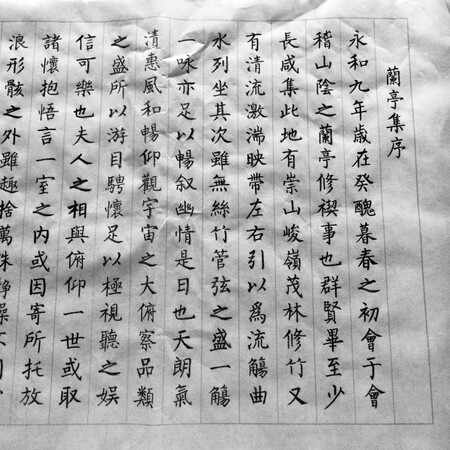 蘭亭集序
永和九年歲在癸醜暮春之初會于會
稽山陰之蘭亭修禊事也群賢畢至少
長咸集此地有崇山峻嶺茂林修竹又
有清流激湍映帶左右引以爲流觴曲
水列坐其次雖無絲竹管弦之盛一觴
一咏亦足以暢叙幽情是日也天朗氣
清惠風和暢仰觀宇宙之大俯察品類
之盛所以游目騁懷足以極視聽之娛
信可樂也夫人之相與俯仰一世或取
諸懷抱悟言一室之内或因寄所托放
浪形骸之外雖趣捨萬殊靜躁不